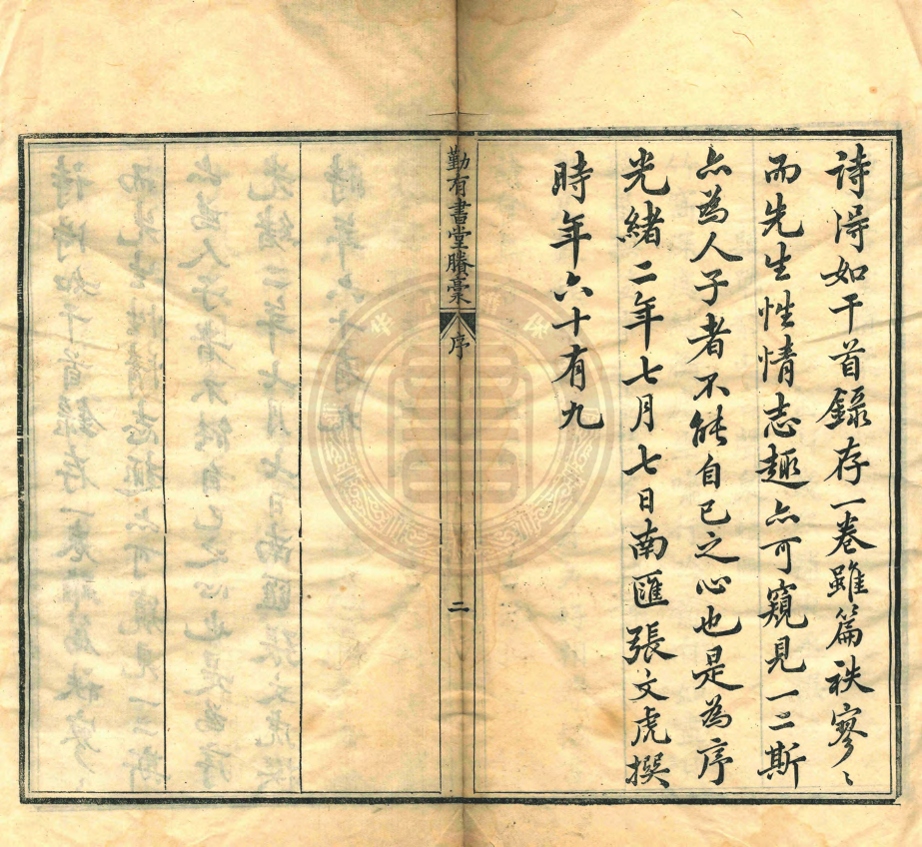 詩得如干首錄存一卷雖篇袟寥〻
而先生性情志趣亦可窺見一二斯
亦為人子者不能自已之心也是為序
光緒二年七月七日南匯張文虎撰
時年六十有九
勤有書堂賸稾 序 二